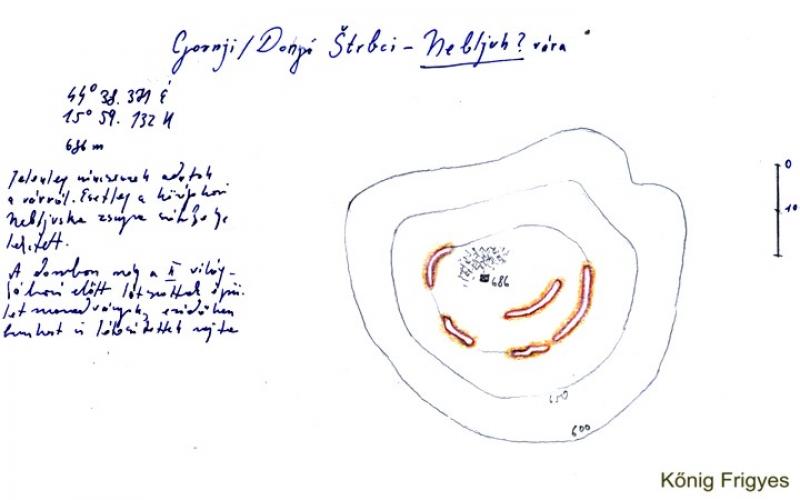 Gornji/Donji Štrbci – Nebljuh? vára
44° 38. 371 É
15° 59. 132 K
686 m
Jelenleg nincsenek adatok
a várról. Esetleg a középkori
Nebljuska zsupa székhelye
lehetett.
A dombon még a II világ-
háború előtt látszottak épü-
let maradványok,
bunkert is létesítettek rajta
0
10
686
650
600
Kőnig Frigyes